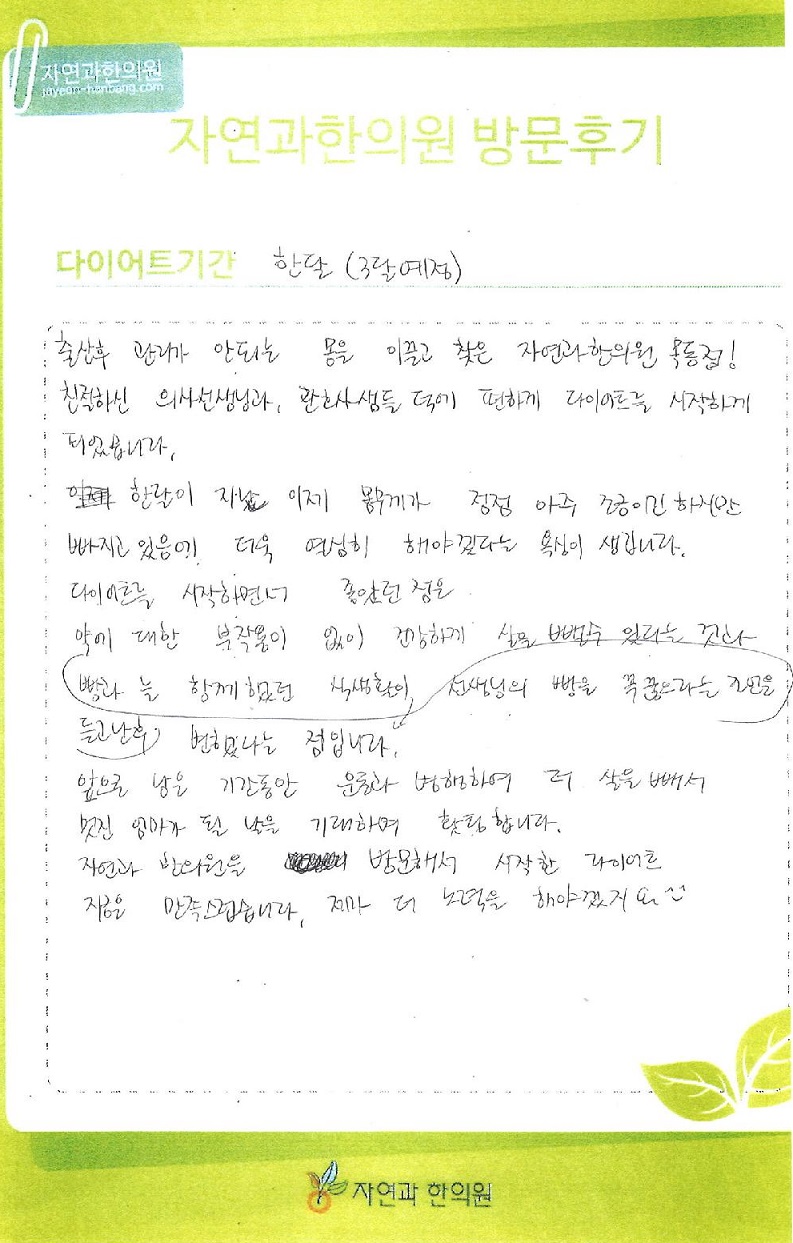 자연과한의원
jayeon-hanbang.com
자연과한의원 방문후기
다이어트기간 한달 (3달예정)
출산후 관리가 안되는 몸을 이끌고 찾은 자연과한의원 목동점!
친절하신 의사선생님과, 간호사샘들 덕에 편하게 다이어트를 시작하게
되었습니다.
한달이 지난 이제 몸무게가 점점 아주 조금이긴 하지만
빠지고 있음에! 더욱 열심히 해야겠다는 욕심이 생깁니다.
다이어트를 시작하면서 좋았던 점은
약에 대한 부작용이 없이 건강하게 살을 뺄수 있다는 것과
빵과 늘 함께했던 식생활이 선생님의 빵을 꼭 끊으라는 조언을
듣고난후 변했다는 점입니다.
앞으로 남은 기간동안 운동과 병행하여 더 살을 빼서
멋진 엄마가 될 날을 기대하며 홧팅합니다.
자연과 한의원을 방문해서 시작한 다이어트
지금은 만족스럽습니다, 제가 더 노력을 해야겠지요 ^^
자연과 한의원